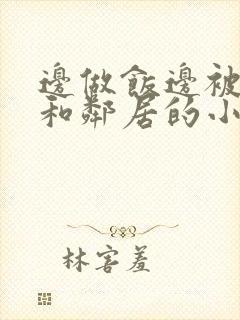 邊做飯邊被
和鄰居的小
林害羞